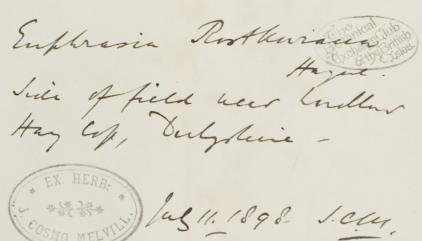 Euphrasia Rostkoviana
Hayne.
Side of field near
Hay Cop, Derbyshire –
July 11. 1898. J.C.M.
The Botanical Exchange Club of the British Isles
EX. HERB: J. COSMO MELVILL.